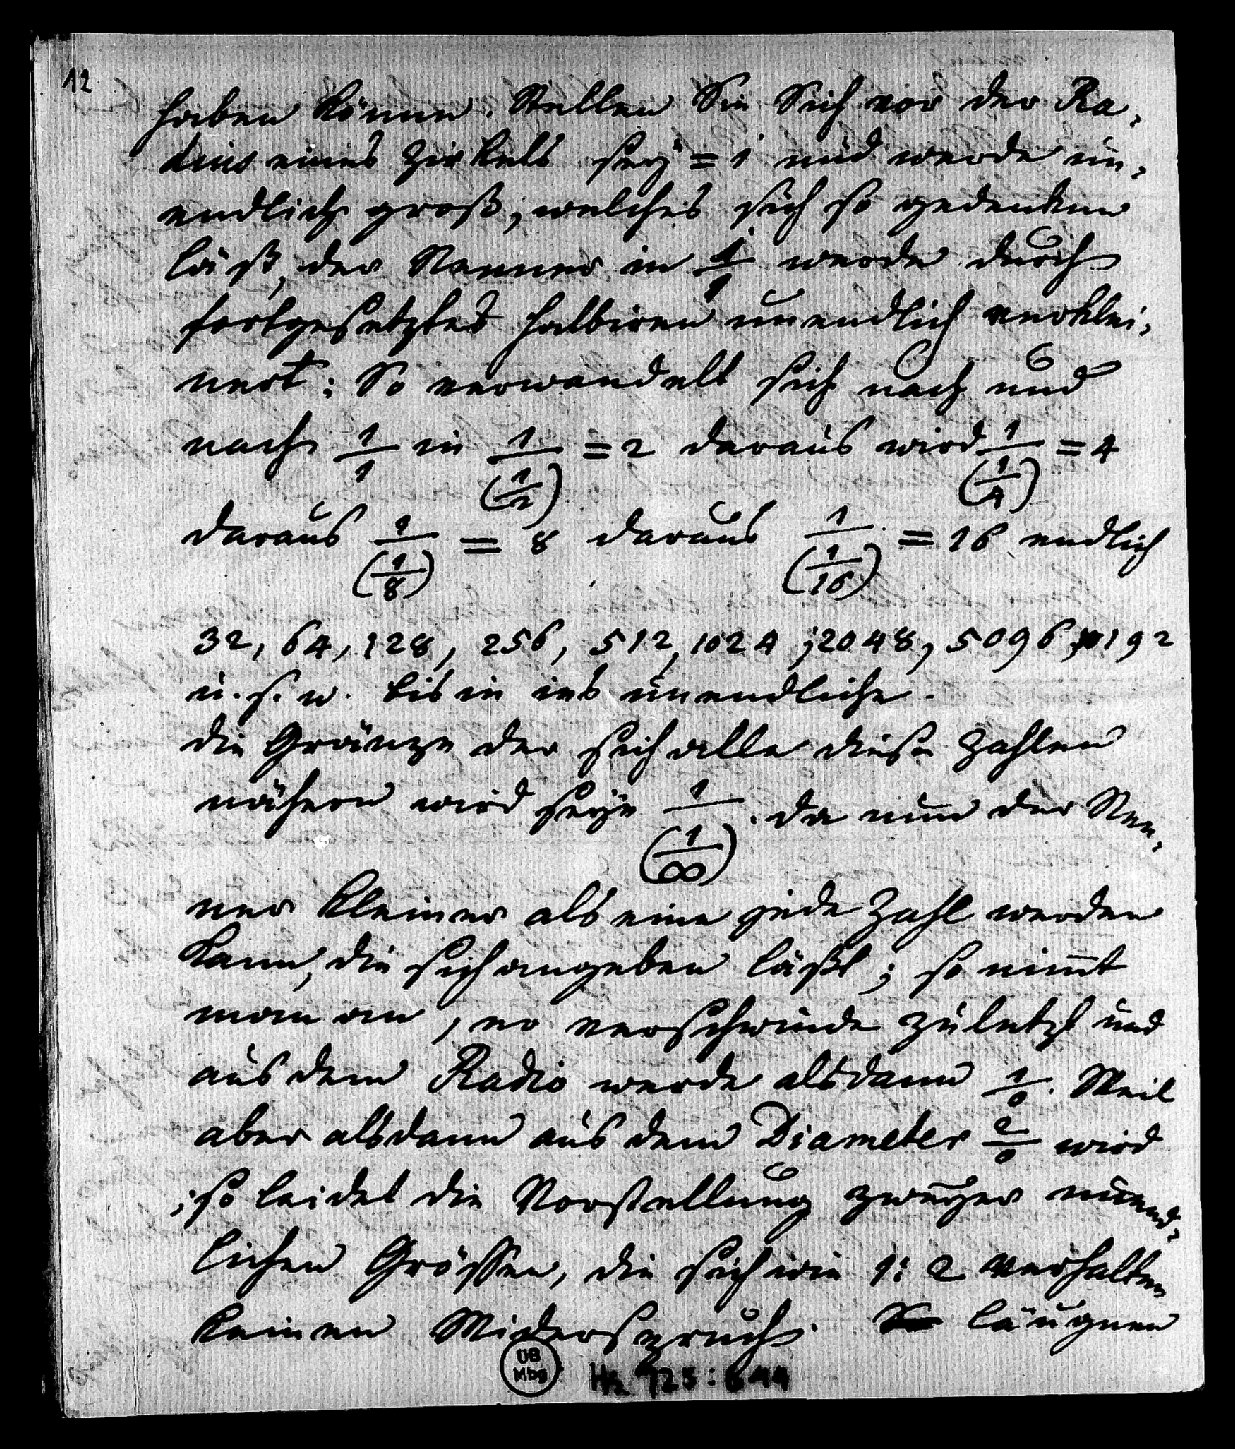 12
haben können. Stellen Sie Sich vor der Ra-
dius eines Zirkels sey = 1 und werde un-
endlich groß, welches sich so gedenken
läßt, der Nenner in 1/1 werde durch
fortgesetztes halbiren unendlich verklei-
nert: So verwandelt sich nach und
nach 1/1 in 1/(1/2) = 2 daraus wird 1/(1/4) = 4
daraus 1/(1/8) = 8 daraus 1/(1/16) = 16 endlich
32, 64, 128, 256, 512, 1024, 2048, 5096, 10192
u. s. w. bis in ins unendliche.
die Gränze der sich alle diese Zahlen
nähern wird seyn 1/(1/∞). da nun der Nen-
ner kleiner als eine jede Zahl werden
kann, die sich angeben läßt; so nimt
man an, er verschwinde zuletzt und
aus dem Radio werde alsdann 1/0. Weil
aber alsdann aus dem Diameter 2/0 wird
; so leidet die Vorstellung zweyer unend-
lichen Grössen, die sich wie 1:2 verhalten
keinen Widerspruch. läugnen
UB
Mbg